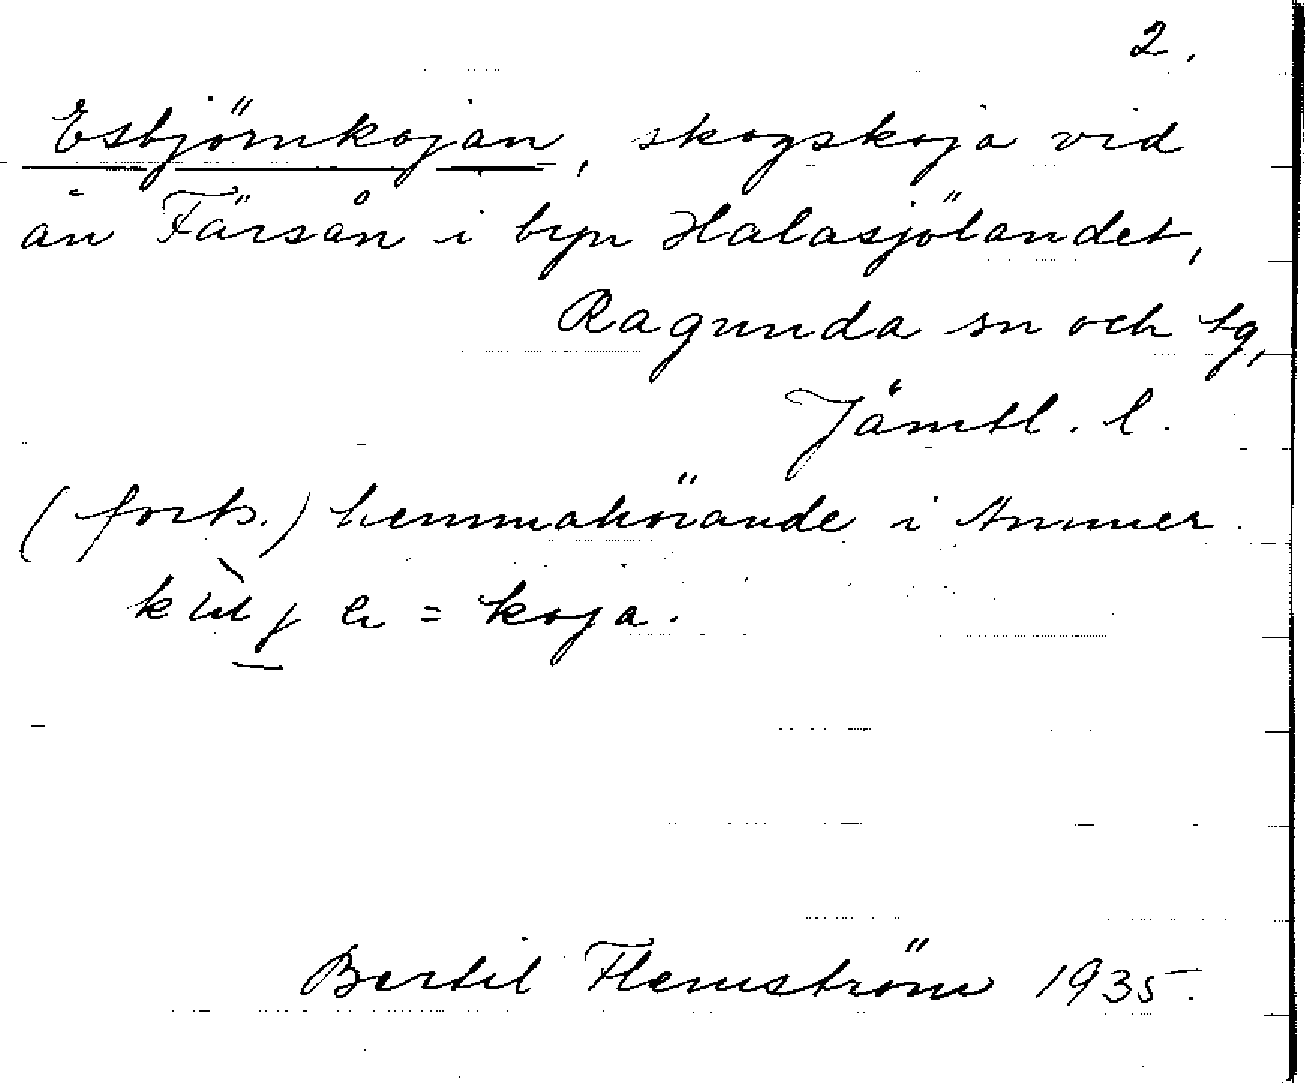 2.
Esbjörnkojan, skogskoja vid
ån Färsån i byn Halasjölandet,
Ragunda sn och tg,
Jämtl. l.
(forts.) hemmahörande i Ammer.
= koja.
Bertil Flemström 1935.